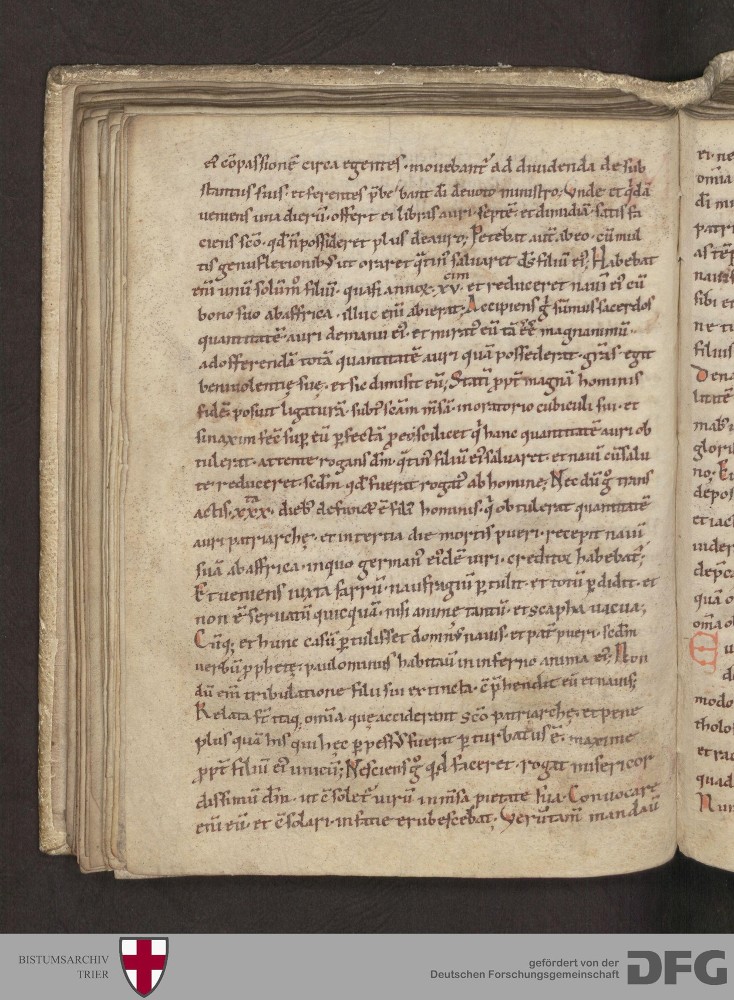 et cōpassionē circa egentes · movebant᷑ ad dividenda de sub
stantiis suis · et ferentes p̄bebant di devoto ministro; Unde et q̄dā
veniens una dierū · offert ei libras auri · septē · et dimidiā · satis fa
ciens sc̄o · qd̄ n̄ possideret plus de auro; Petebat aut̄ ab eo · cū mul
tis genuflexionib; ut oraret q̄tin᷒ salvaret ds̄ filiū ei᷒; Habebat
enī unū solūm᷒ filiū · quasi annoꝝ · xv · cim et reduceret navī ei᷒ cū
bono suo ab affrica · illuc enī abierat; Accipiens g̊ sūmus sacerdos
quantitatē · auri de manu ei᷒ · et mirat᷒ eū tā eē magnanimū ·
ad offerendā totā quantitatē auri quā possederat · grās egit
benivolentię suę · et sic dimisit eū; Statī ppt̄ magnā hominis
fidē posuit ligaturā · subt᷒ scām m̄sā · in oratorio cubiculi sui · et
sinaxim fec̄ sup̄ eū pfectā p eo · scilicet q̇ hanc quantitatē auri ob
tulerat · attente rogans dm̄ · q̄tin᷒ filiū ei᷒ salvaret · et navī cū salu
te reduceret · scdm̄ qd̄ fuerat rogat᷒ ab homine; Nec dū g̊ trans
actis · xxx · ta dieb; defunct᷒ ē fili᷒ hominis · q̇ obtulerat quantitatē
auri patriarchę · et in tertia die mortis pueri · recepit navī
suā ab affrica · in quo german᷒ ei᷒dē viri · creditor habebat᷑;
Et veniens iuxta farrū · naufragiū ptulit · et totū pdidit · et
non ē servatū quicquā · nisi anime tantū · et scapha vacua;
Cūq; et hunc casū ptulisset domn᷒ navis · et pat̄ pueri · scdm̄
verbū pphetę · paulominus habitavi in inferno anima ei᷒; Non
dū enī tribulatione filii sui extincta · cp̄hendit eū et navis;
Relata st̄ itaq; om̄ia quę acciderant sc̄o patriarchę · et pene
plus quā his qui hęc ppess᷒ fuerat pturbatus ē · maxime
ppt̄ filiū ei᷒ unicū; Nesciens g̊ qd̄ faceret · rogat misericor
dissimū dm̄ · ut c̄solet᷑ virū inm̄sa pietate sua · Convocare
enī eū · et c̄solari · in facie erubescebat · Verūtam̄ mandavi
BISTUMSARCHIV
TRIER
gefördert von der
Deutschen Forschungsgemeinschaft
DFG